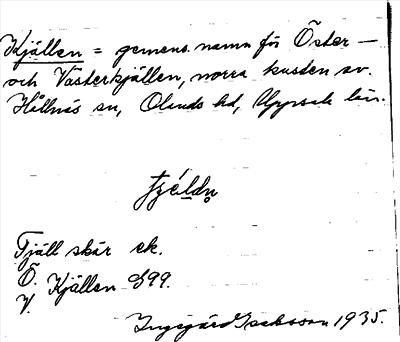 Kjällen = gemens. namn för Öster-
och Västerkjällen, norra kusten av
Hållnäs sn, Olands hd, Uppsala län.
Fjäll skär ek.
Ö.
V. Kjällen S99.
Ingegärd Isaksson 1935.